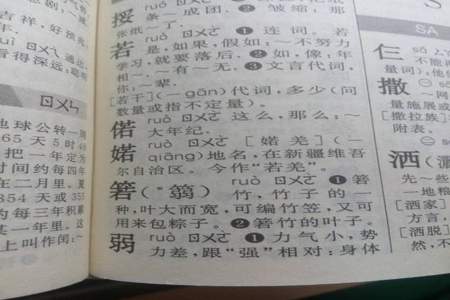 挼 ruó ㄖㄨㄛˊ
条一成团。❷皱缩;那
张纸~了。
若 ruò ㄖㄨㄛˋ ❶连词。若
是,如果,假如:~不努力
学习,就要落后。❷如,像:年
相~、~有~无。❸文言代词,
你:~辈。
[若干](-gān)代词,多少(问
数量或指不定量)。
偌 ruò ㄖㄨㄛˋ 这么,那么:~
大年纪。
婼 ruò ㄖㄨㄛˋ [婼羌](-
qiāng)地名,在新疆维吾
尔自治区。今作"若羌"。
箬(*篛) ruò ㄖㄨㄛˋ ❶箬
竹,竹子的一
种,叶大而宽,可编竹笠,又可
用来包粽子。❷箬竹的叶子。
弱 ruò ㄖㄨㄛˋ ❶力气小,势
力差,跟"强"相对:身体
吉祥,好预
ㄖㄨㄣˋ
看得深远
ㄖㄨㄣˋ
地球公转一周
365天5时48
把一年定为
时间约每四年
在二月里。夏
354天或355
约每三年积累
某一年里。这
上叫作闰:~
SA
仨
量词),他们
撒
~网
量施展或
[撒拉族]
附表。
洒(
先~些
一地粮
[洒家]
方言,
[洒脱]
然,不